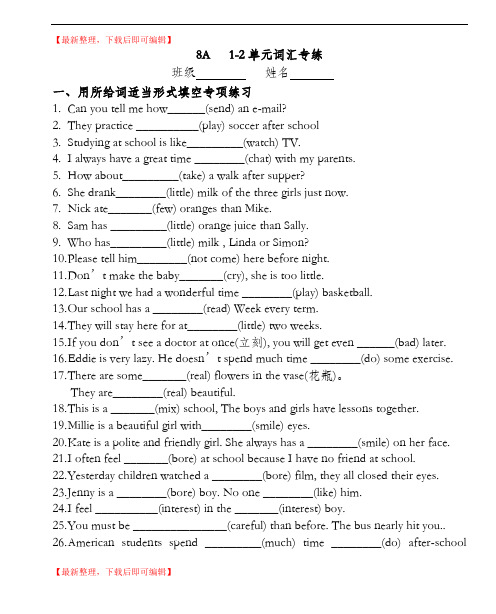 【最新整理，下载后即可编辑】
8A 1-2单元词汇专练
班级________ 姓名_______
一、用所给词适当形式填空专项练习
1. Can you tell me how______(send) an e-mail?
2. They practice __________(play) soccer after school
3. Studying at school is like_________(watch) TV.
4. I always have a great time ________(chat) with my parents.
5. How about_________(take) a walk after supper?
6. She drank________(little) milk of the three girls just now.
7. Nick ate_______(few) oranges than Mike.
8. Sam has _________(little) orange juice than Sally.
9. Who has_________(little) milk , Linda or Simon?
10.Please tell him________(not come) here before night.
11.Don’t make the baby_______(cry), she is too little.
12.Last night we had a wonderful time ________(play) basketball.
13.Our school has a ________(read) Week every term.
14.They will stay here for at________(little) two weeks.
15.If you don’t see a doctor at once(立刻), you will get even ______(bad) later.
16.Eddie is very lazy. He doesn’t spend much time ________(do) some exercise.
17.There are some_______(real) flowers in the vase(花瓶)。
They are________(real) beautiful.
18.This is a _______(mix) school, The boys and girls have lessons together.
19.Millie is a beautiful girl with________(smile) eyes.
20.Kate is a polite and friendly girl. She always has a ________(smile) on her face.
21.I often feel _______(bore) at school because I have no friend at school.
22.Yesterday children watched a ________(bore) film, they all closed their eyes.
23.Jenny is a ________(bore) boy. No one ________(like) him.
24.I feel __________(interest) in the _______(interest) boy.
25.You must be _______________(careful) than before. The bus nearly hit you..
26.American students spend _________(much) time ________(do) after-school
【最新整理，下载后即可编辑】